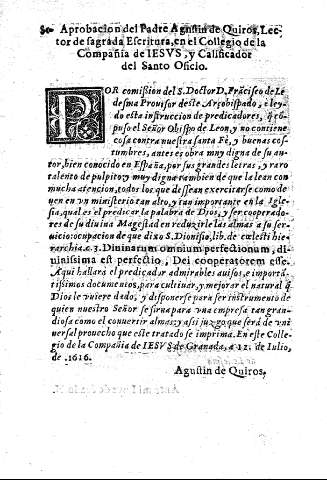 Aprobacion del Padre Agustin de Quiros, Lec
tor de sagrada Escritura, en el Collegio de la
Compañia de IESVS, y Calificador
del Santo Oficio.
POR comission del S. Doctor D. Frācisco de Le
desma Prouisor deste Arçobispado, è ley-
do esta instruccion de predicadores, q̃ cō
puso el Señor Obispo de Leon, y no contiene
cosa contra nuestra santa Fè, y buenas cos-
tumbres, antes es obra muy digna de su au
tor, bien conocido en España, por sus grandes letras, y raro
talento de pulpito: y muy digna tambien de que la lean con
mucha atencion, todos los que dessean exercitarse como de
uen en vn ministerio tan alto, y tan importante en la Igle-
sia, qual es el predicar la palabra de Dios, y ser cooperadores
de su diuina Magestad en reduzirle las almas a su ser-
uicio: ocupacion de que dixo S. Dionisio, lib. de cœlesti hie
rarchia c. 3. Diuinarum omnium perfectionum, di-
uinissima est perfectio, Dei cooperatorem esse.
Aqui hallarà el predicador admirables auisos, e importā-
tissimos documentos, para cultiuar, y mejorar el natural q̃
Dios le vuiere dado, y disponerse para ser instrumento de
quien nuestro Señor se sirua para vna empresa tan gran-
diosa como el conuertir almas: y assi juzgo, que serà de vni
uersal prouecho que este tratado se imprima. En este Colle-
gio de la Compañia de IESVS de Granada, a 12. de Iulio,
de .1616.
Agustin de Quiros.